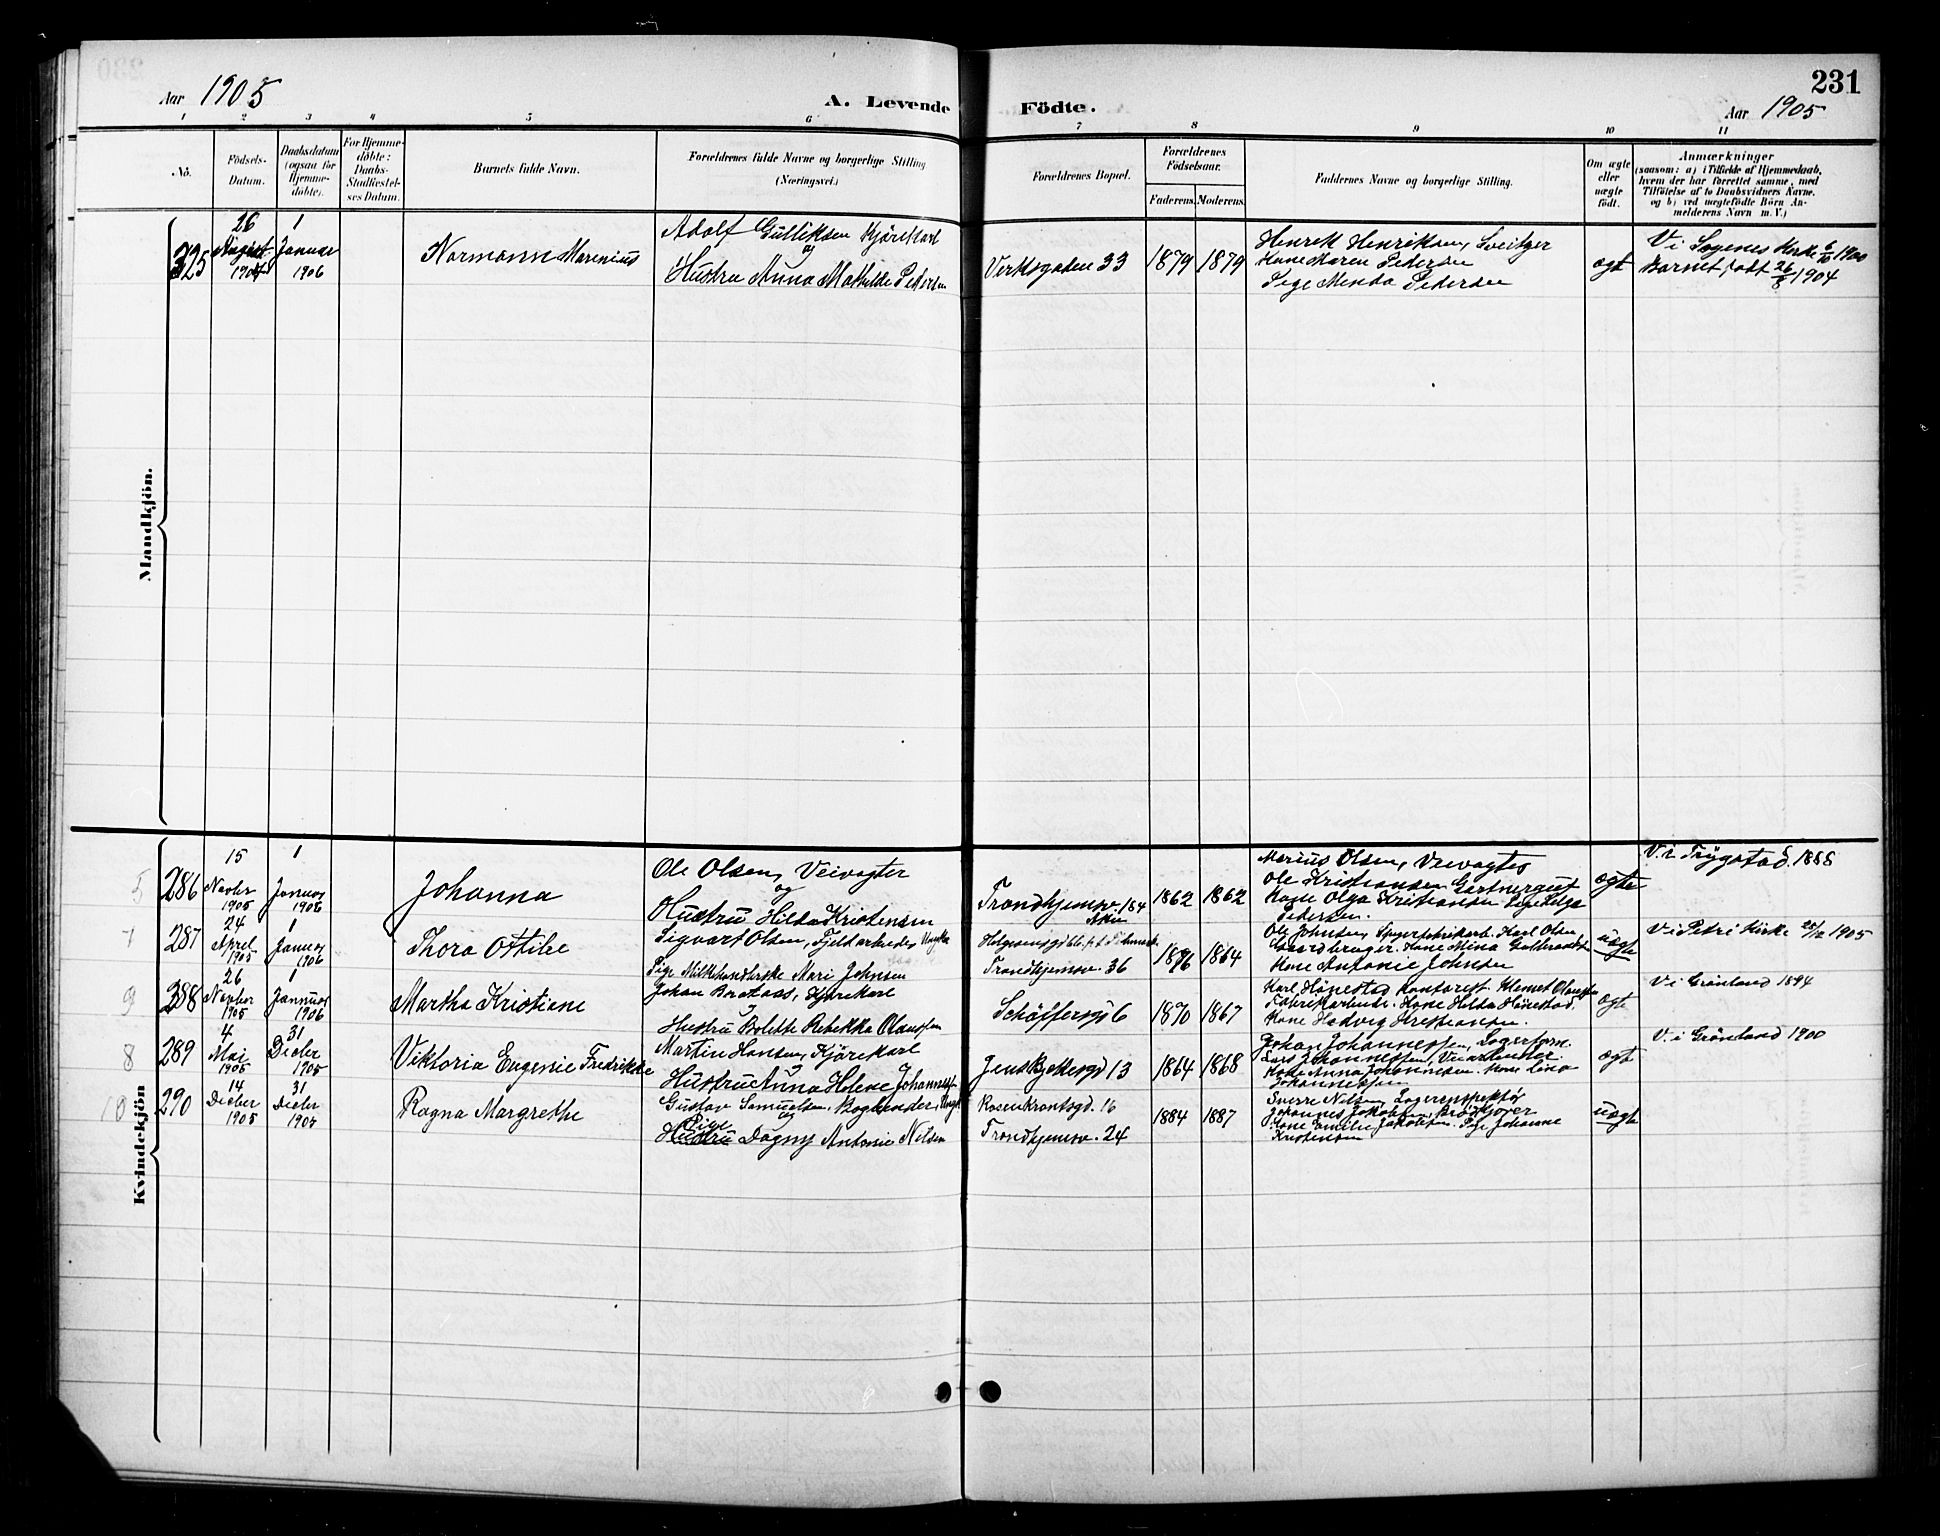 231
Aar 1905
A. Levende Födte.
Aar 1905
1 2 3 4 5 6 7 8 9 10 11
No.
Födsels-
Datum.
Daabsdatum
(ogsaa for
Hjemme-
döbte).
For Hjemme-
döbte:
Daabs-
Stadfæstel-
ses Datum.
Barnets fulde Navn.
Forældrenes fulde Navne og borgerlige Stilling
(Næringsvei.)
Forældrenes Bopæl.
Forældrenes
Födselsaar.
Faderens. Moderens.
Faddernes Navne og borgerlige Stilling.
Om ægte
eller
uægte
födt.
Anmærkninger
(saasom: a) i Tilfælde af Hjemmedaab,
hvem der har forrettet samme, med
Tilföielse af to Daabsvidners Navne,
og b) ved uægtefödte Börn An-
melderens Navn m. V.)
Mandkjön.
325
26
August
1904
1
Januar
1906
Normann Marenius
Adolf Gulliksen Kjörekarl
og
Hustru Anna Mathilde Pedersen
Verksgaden 33
1879 1879
Henrik Henriksen, Sveitzer
Kone Maren Pedersen
Pige Menda Pedersen
ægt
V. i Sogenes Kirke 6/10 1900
Barnet födt 26/8 1904
Kvindekjön
5
286
15
Novbr
1905
1
Januar
1906
Johanna
Ole Olsen, Veivogter
og
Hustru Hilda Kristensen
Trondhjemsv. 184
1862 1862
Marius Olsen, Veivogter
Ole Kristiansen Gartnergut
Kone Olga Kristiansen Pige Helga
Pedersen.
ægte
V. i Trygstad 1888
7
287
24
April
1905
1
Januar
1906
Thora Ottilie
Sigvart Olsen, Fjeldarbeider, Ungka
Pige Milkehandlerske Mari Johnsen
Trondhjemsv. 36
1876 1864
Ole Johnsen, Spigerfabrikarb. Karl Olsen
Gaardbruger. Kone Mina Gulbrandsen
Kone Antonie Johnsen
uægt
V i Petri Kirke 1905
9
288
26
Novbr
1905
1
Januar
1906
Martha Kristiane
Johan Braataas, Kjörekarl
Hustru Bolette Rebekka Olaussen
Schöffersgd 6
1870 1867
Karl Hönestad Kontorist Klemet Olaussen
Fabrikarbeider. Kone Hilda Hönestad.
Kone Hedvig Kristiansen.
ægt
V. i Grönland 1894
8
289
4
Mai
1905
31
Decbr
1905
Viktoria Eugenie Fredrikke
Martin Hansen, Kjörekarl
Hustru Anna Helene Johannes
Jens Bjelkesgd 13
1864 1868
Johan Johannessen, Lagerform.
Lars Johannessen, Veiarbeider.
Kone Anna Johannesen. Kone Lina
Johannessen
ægt
V. i Grönland 1900
10
290
14
Decbr
1905
31
Decbr
1905
Ragna Margrethe
Gustav Samuelsen, Bogbinder, Ungk
og
Pige
Hustru Dagny Antonie Nilsen
Rosenkrantsgd. 16
Trondhjemsv. 24
1884 1887
Sverre Nilsen, Lagerinspektör
Johannes Jakobsen, Brödkjører
Kone Emilie Jakobsen. Pige Johanne
Kristensen
uægt